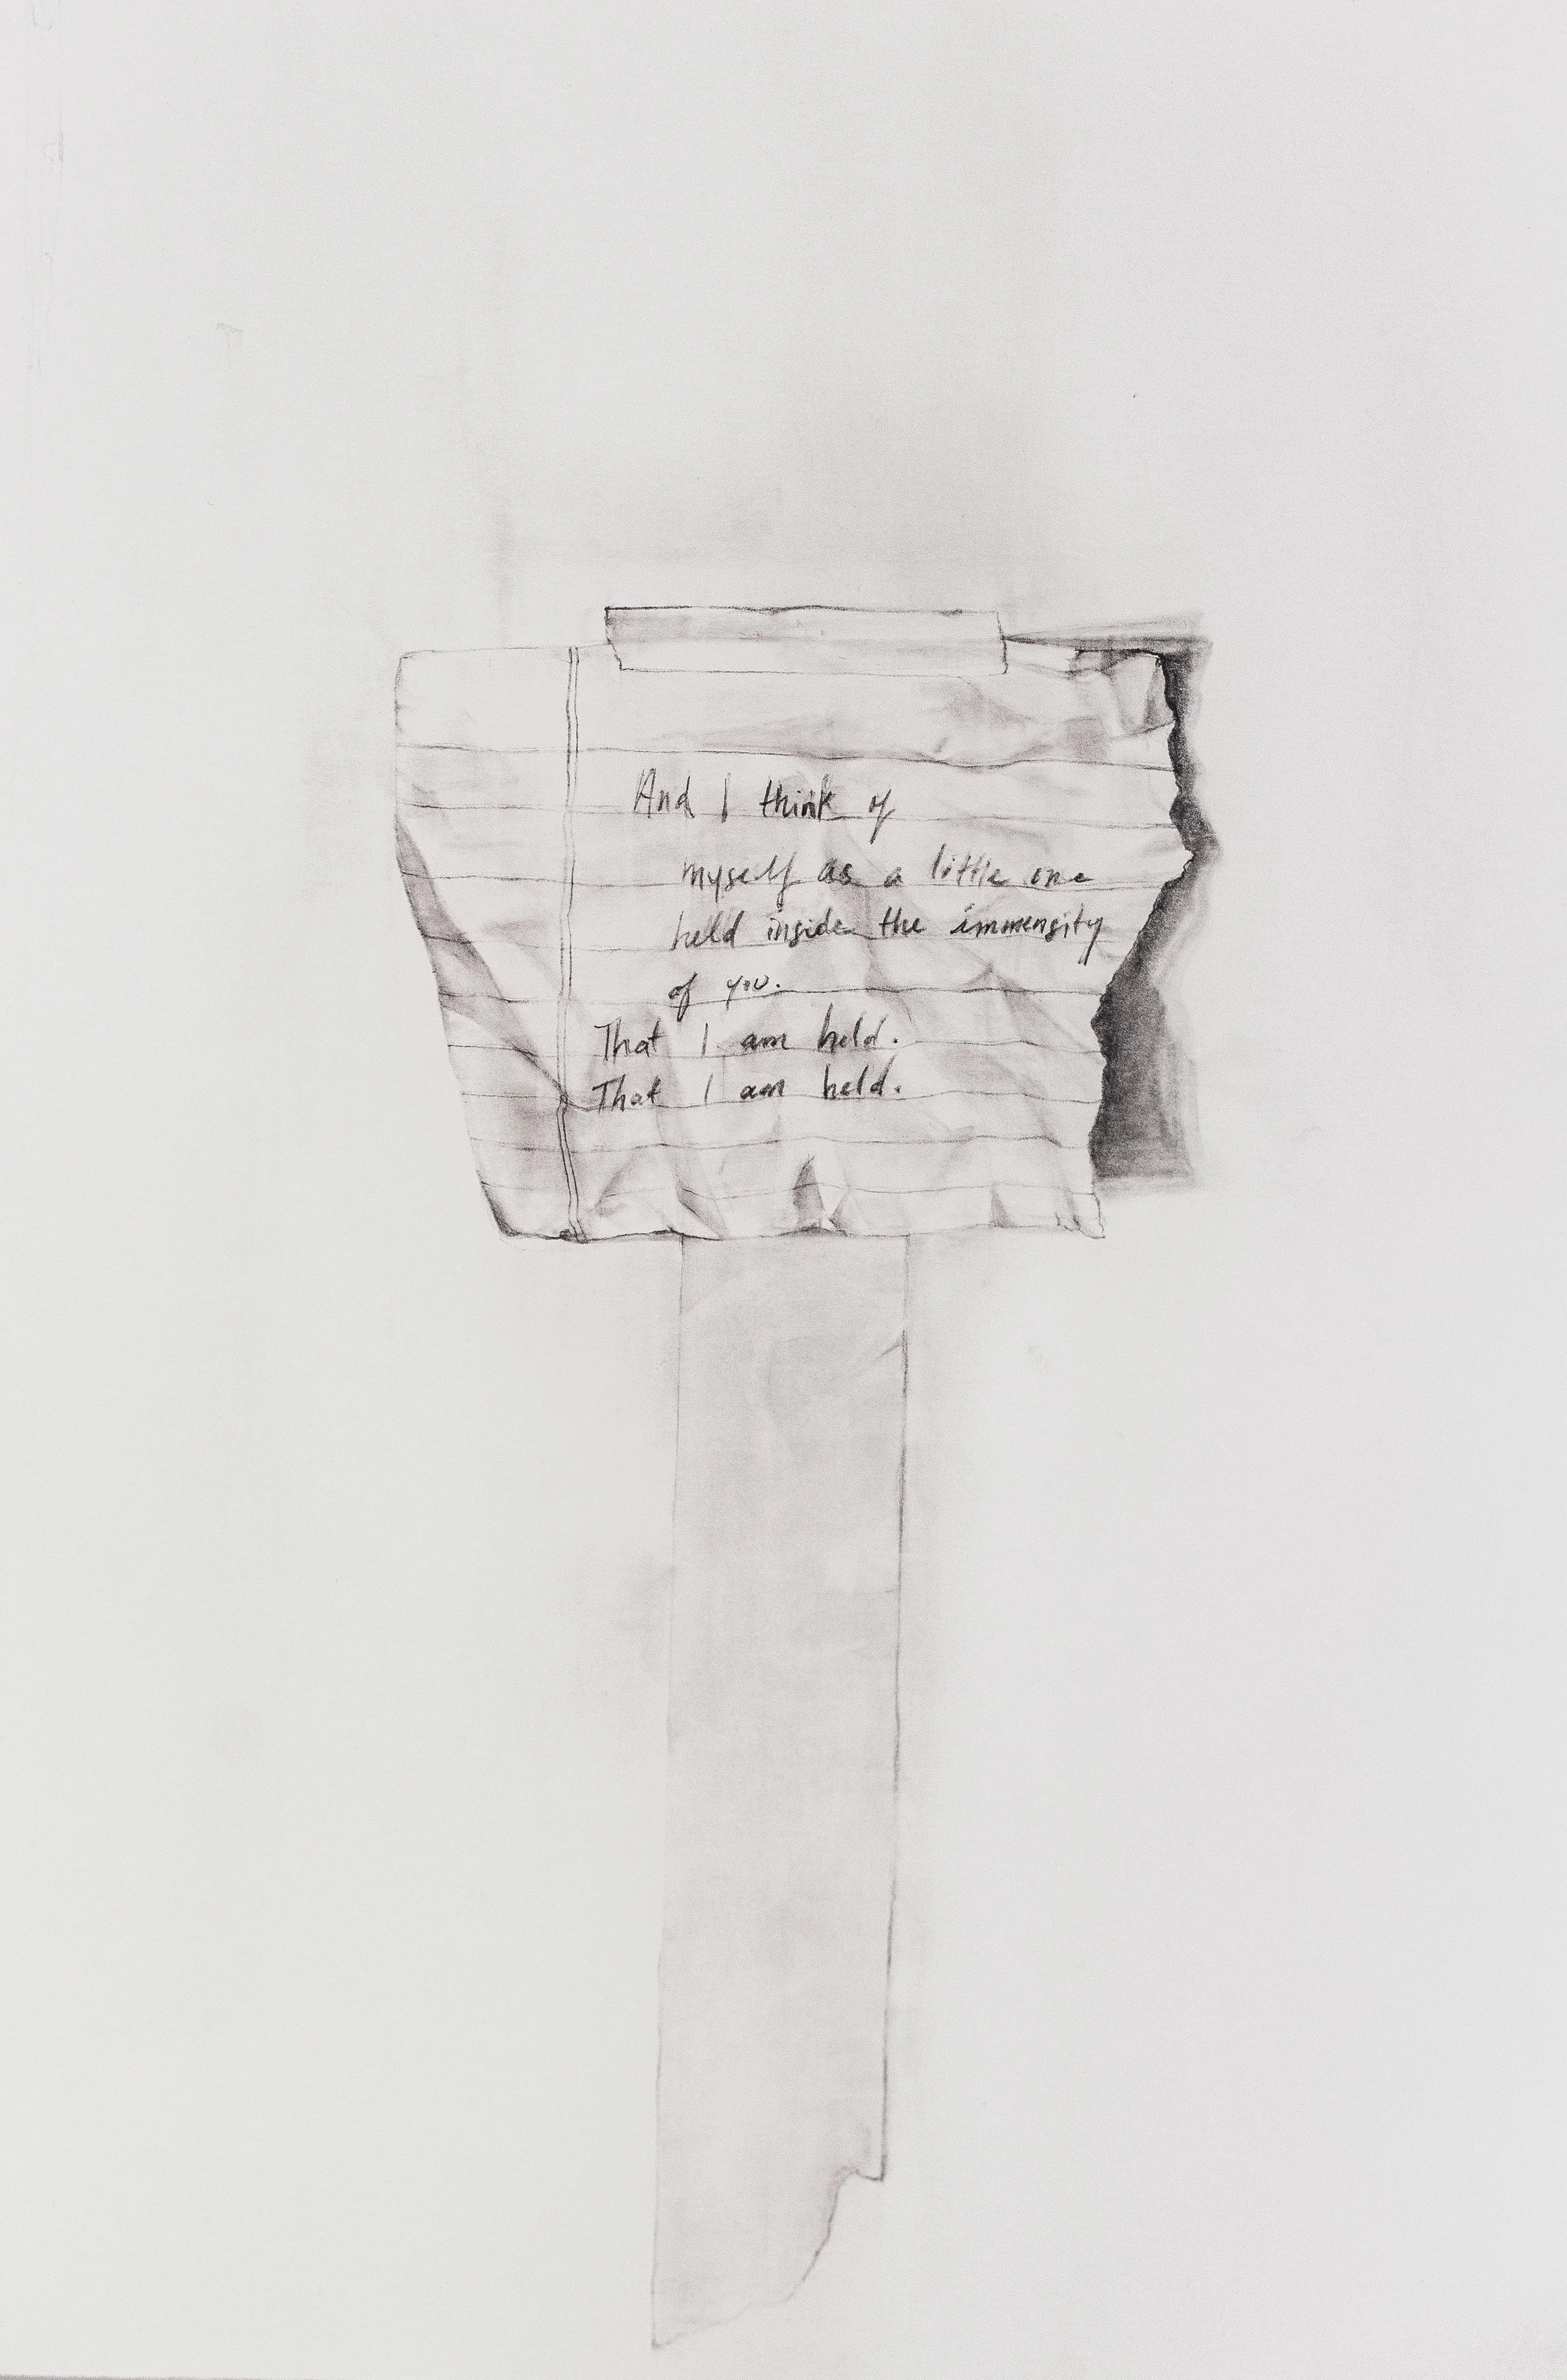 And I think of
myself as a little one
held inside the immensity
of you.
That I am held.
That I am held.